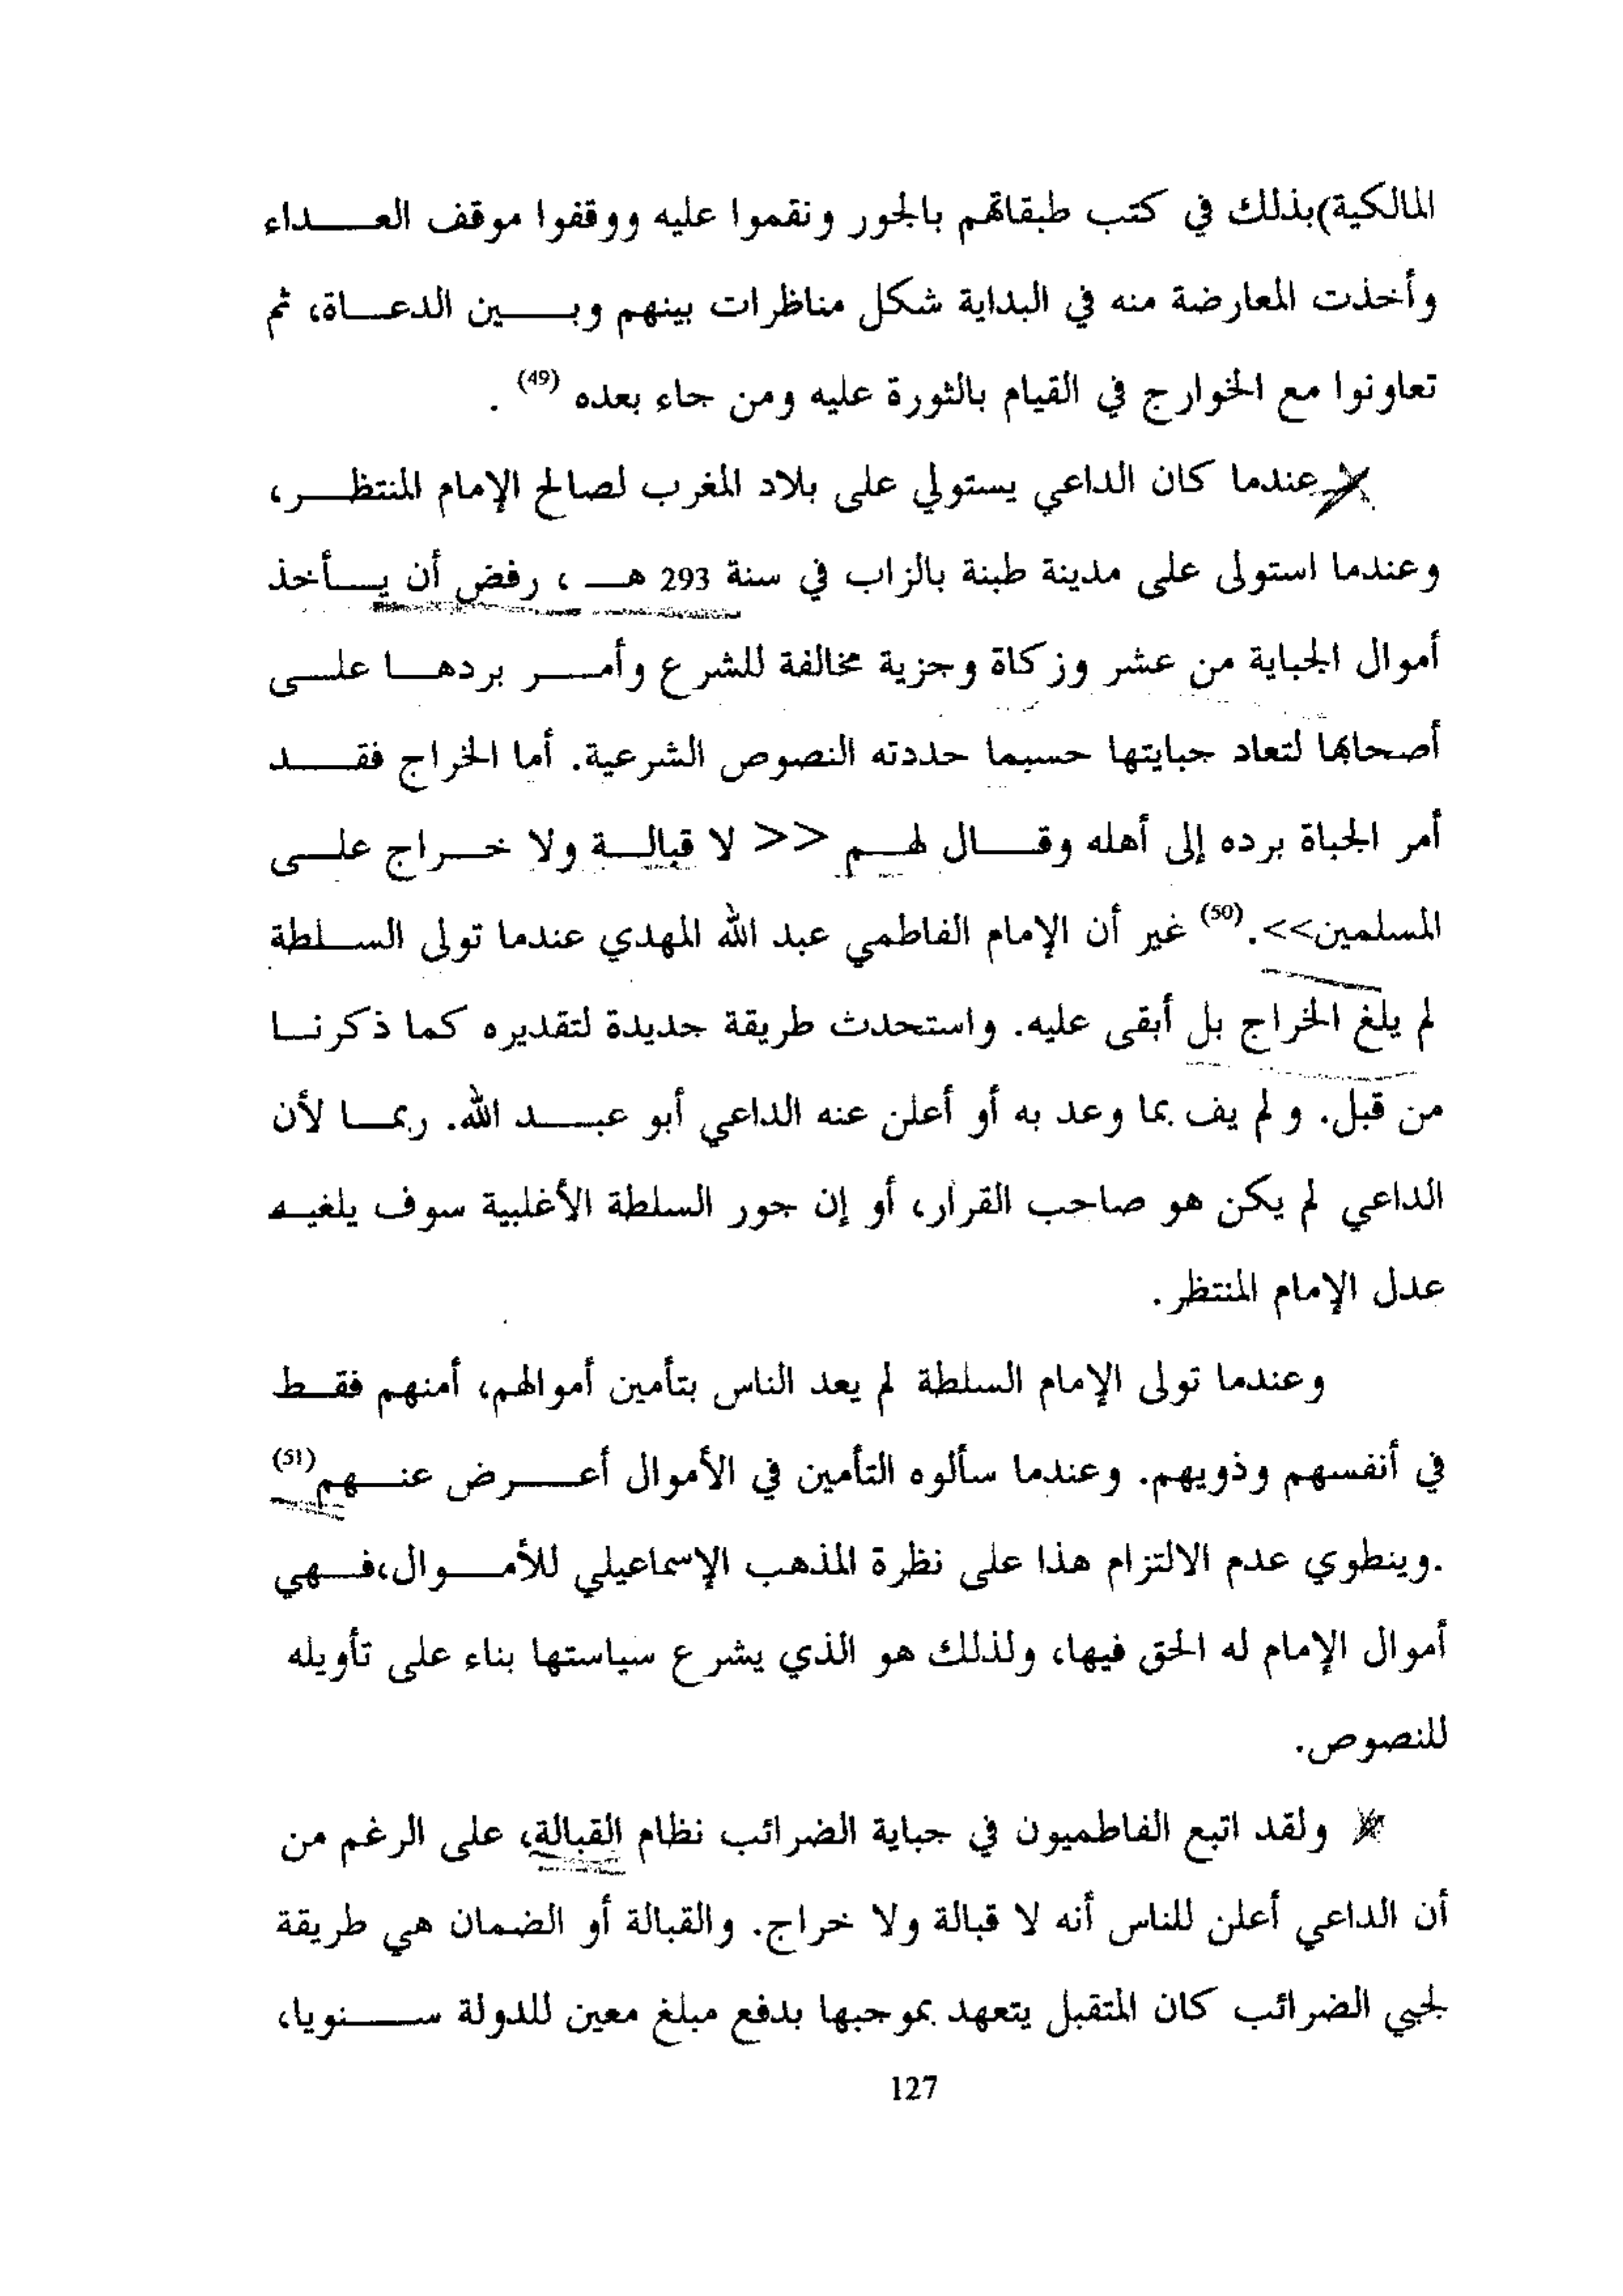 المالكية)بذلك في كتب طبقاتهم بالجور ونقموا عليه ووقفوا موقف العداء
وأخذت المعارضة منه في البداية شكل مناظرات بينهم وبين الدعاة، ثم
تعاونوا مع الخوارج في القيام بالثورة عليه ومن جاء بعده (49) .
عندما كان الداعي يستولي على بلاد المغرب لصالح الإمام المنتظر،
وعندما استولى على مدينة طبنة بالزاب في سنة 293 هـ ، رفض أن يأخذ
أموال الجباية من عشر وزكاة وجزية مخالفة للشرع وأمر بردها على
أصحابها لتعاد جبايتها حسبما حددته النصوص الشرعية. أما الخراج فقد
أمر الجباة برده إلى أهله وقال لهم << لا قبالة ولا خراج على
المسلمين>>.(50) غير أن الإمام الفاطمي عبد الله المهدي عندما تولى السلطة
لم يلغ الخراج بل أبقى عليه. واستحدث طريقة جديدة لتقديره كما ذكرنا
من قبل. ولم يف بما وعد به أو أعلن عنه الداعي أبو عبد الله. ربما لأن
الداعي لم يكن هو صاحب القرار، أو إن جور السلطة الأغلبية سوف يلغيه
عدل الإمام المنتظر.
وعندما تولى الإمام السلطة لم يعد الناس بتأمين أموالهم، أمنهم فقط
في أنفسهم وذويهم. وعندما سألوه التأمين في الأموال أعرض عنهم(51)
.وينطوي عدم الالتزام هذا على نظرة المذهب الإسماعيلي للأموال،فهي
أموال الإمام له الحق فيها، ولذلك هو الذي يشرع سياستها بناء على تأويله
للنصوص.
* ولقد اتبع الفاطميون في جباية الضرائب نظام القبالة، على الرغم من
أن الداعي أعلن للناس أنه لا قبالة ولا خراج. والقبالة أو الضمان هي طريقة
لجبي الضرائب كان المتقبل يتعهد بموجبها بدفع مبلغ معين للدولة سنويا،
127